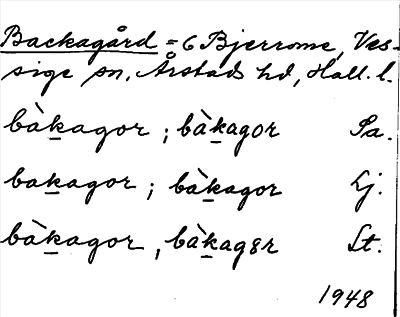 Backagård = 6 Bjerrome, Ves-
sige sn, Årstads hd, Hall. l.
bàkagor ; bàkagor Sa.
bakagor ; bàkagor Lj.
bàkagor , bàkagɜr St.
1948